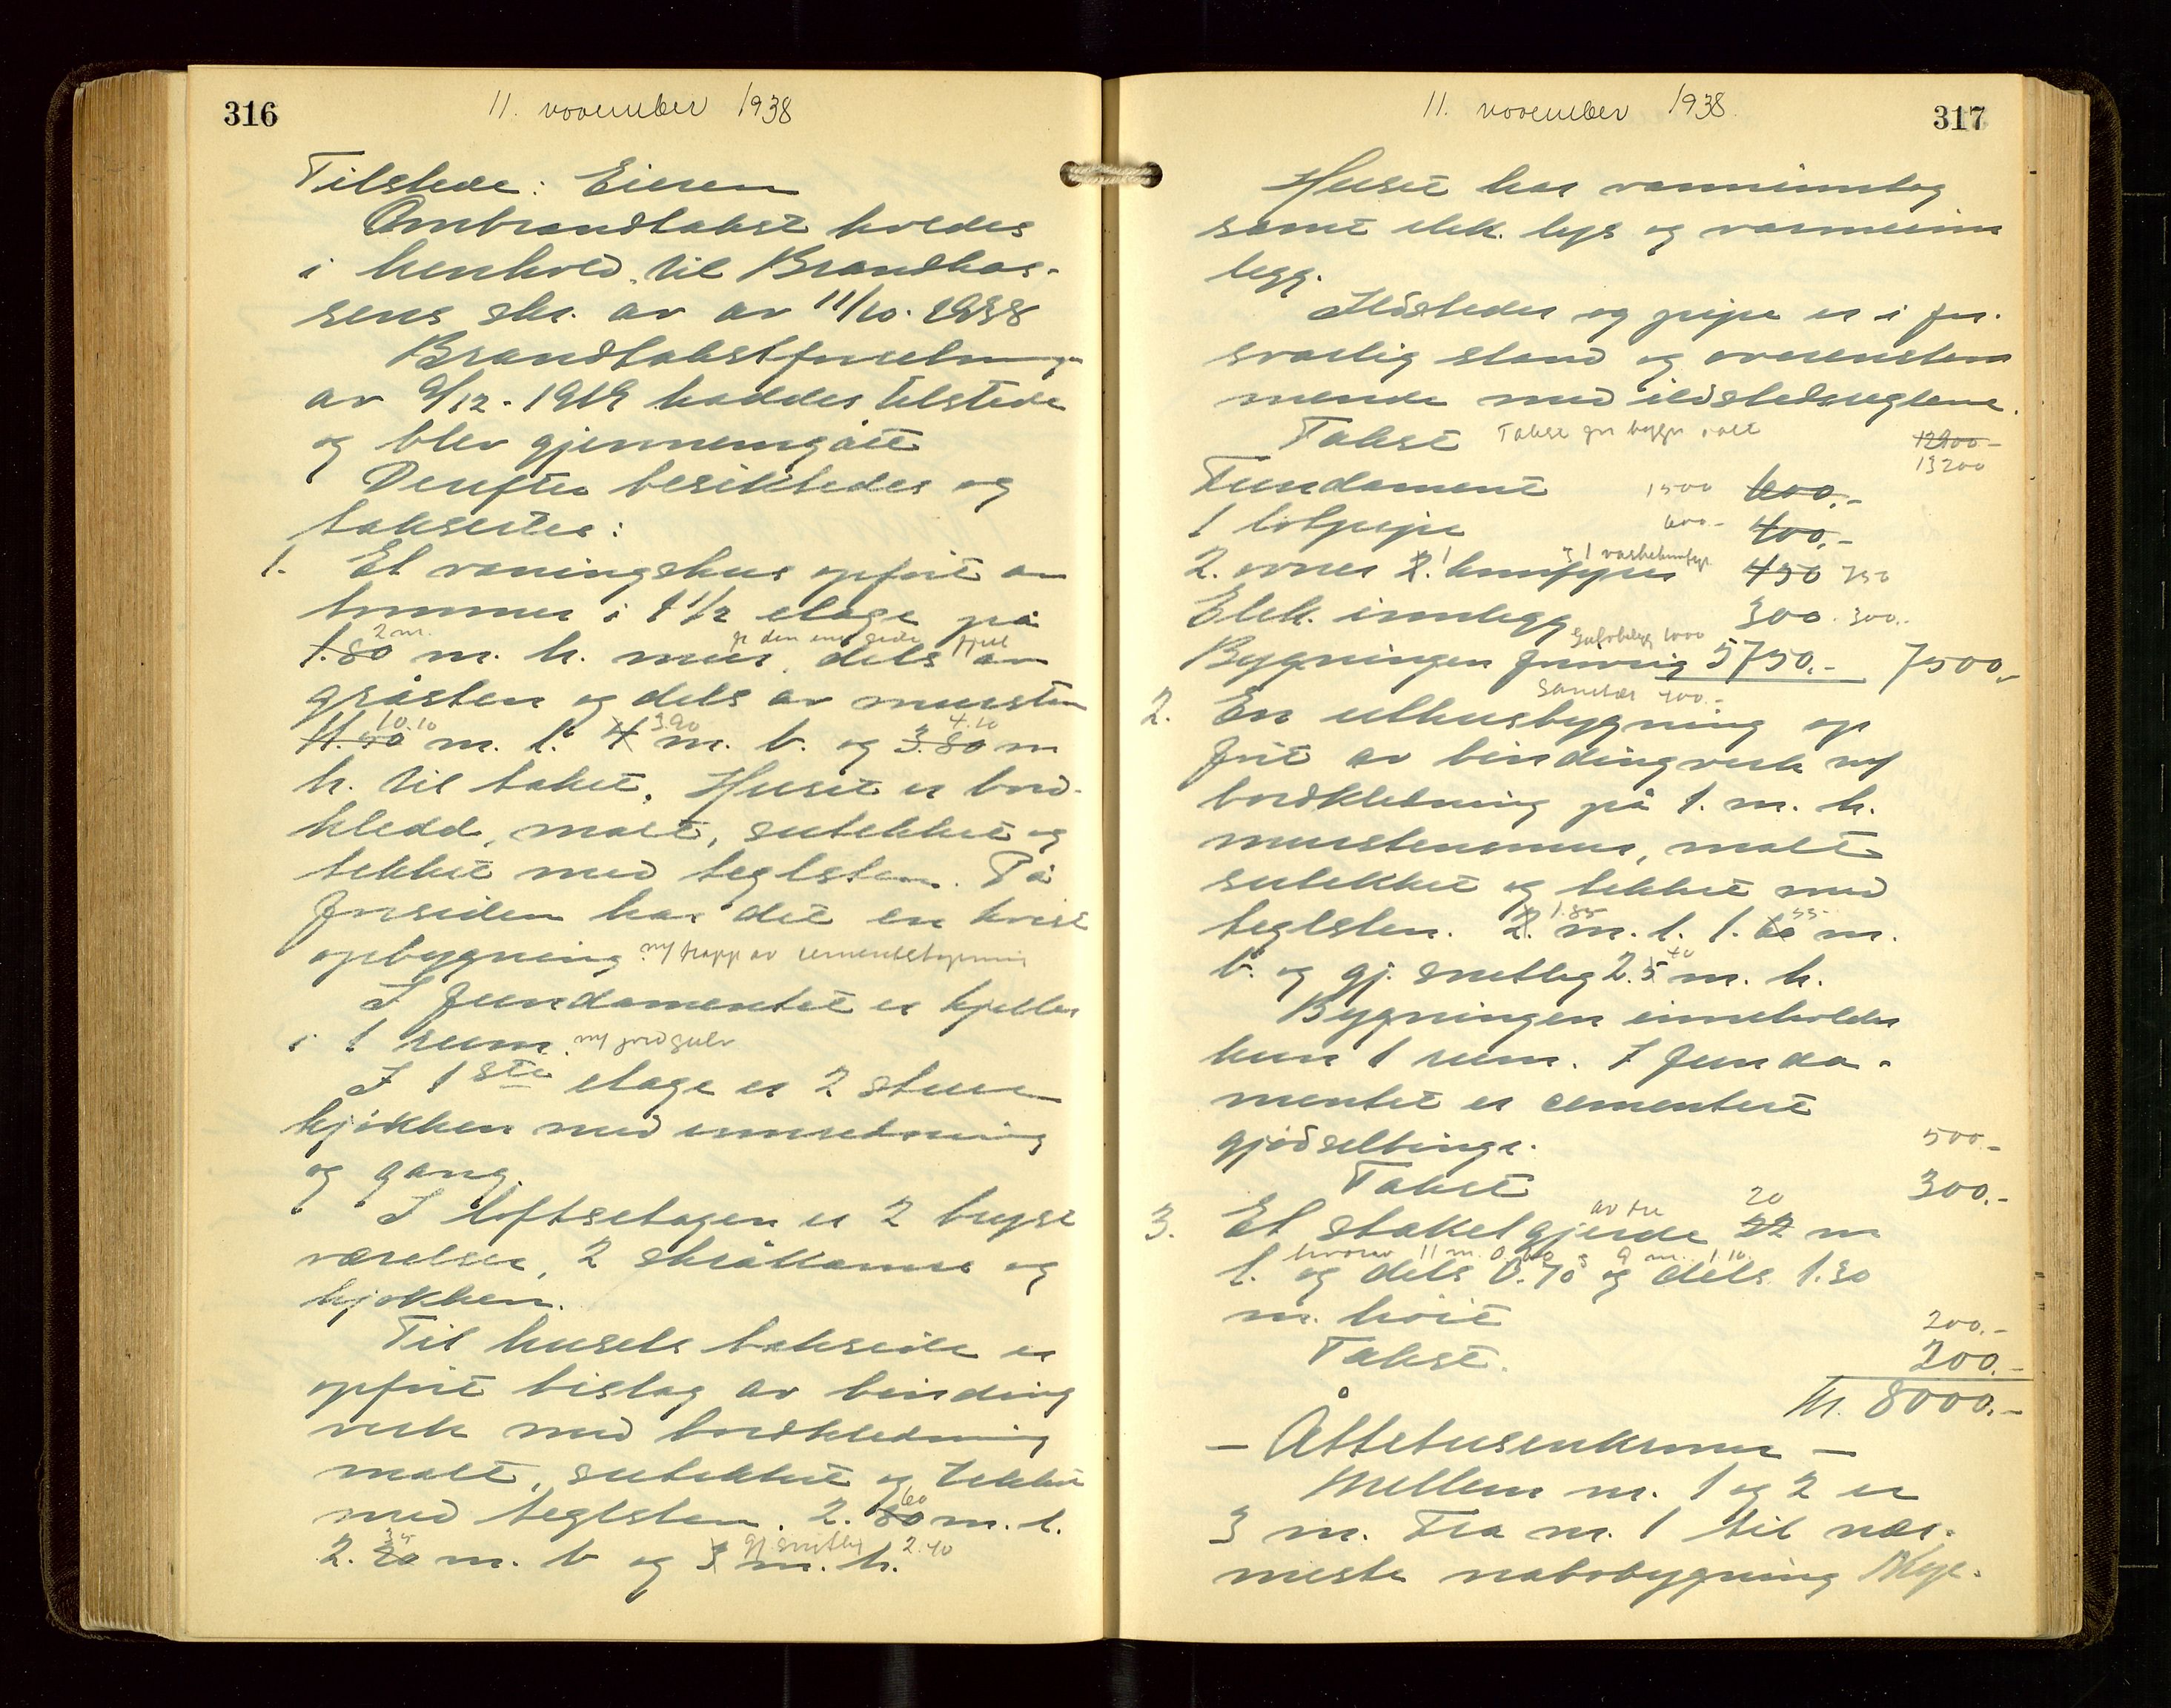 316
11. november 1938
Tilstede: Eieren
Ombrandtakst holdes
i henhold til Brandkas-
sens skr. av av 11/10. 1938
Brandtakstforretning
av 9/12-1919 haddes tilstede
og blev gjennemgått
Derefter besiktedes og
takseertes:
1. Et våningshus opført av
tømmer i 1 1/2 etage på
2 m. på den ene side fjell
1.80 m. h. mur, dels av
gråsten og dels av mursten
10.10 3.90 4.10
11.50 m. l. 4 m. b. og 3.80 m
h. til taket. Huset er bord-
kledd, malt, sutekket og
tekket med teglsten. På
forsiden har det en kvist
opbygning m/ trapp av cementstøpning
I fundamentet er kjeller
i 1 rum. m/ jordgulv
I 1ste etage er 2 stuer
kjøkken med innredning
og gang.
I loftsetagen er 2 kvist
værelser, 2 skråkamre og
kjøkken.
Til husets bakside er
opført bislag av binding
verk med bordkledning
malt, sutekket og tekket
med teglsten. 2.80 60 m. l.
35 gj. snitlig 2.40
2.20 m. b og 3 m. h.
317
11. november 1938.
Huset har vanninntag
samt elek. lys og varmeinn
legg.
Ildsteder og pipe er i for-
svarlig stand og overenstem
mende med ildstedsreglene.
Takst Takst for bygn. i alt 12900-
13200
Fundament 1500 600.-
1 løtpipe 600- 400.-
2. ovner 2. 1 komfyrer og 1 vaskekomfyr 450 750
Elek. innlegg 300. 300.-
Gulvbelegg 1000
Bygningen forøvrig 5750.- 7500.-
Sanitær 400.-
2. En uthusbygning op
ført av bindingverk m/
bordkledning på 1. m. h.
murstensmur, malt
sutekket og tekket med
teglsten. 2. 1.85 m. l. 1.60 55 m.
b. og gj. snitlig 2.5 40 m. h.
Bygningen inneholder
kun 1 rum. I funda-
mentet er cementert
gjødselbinge.
500.-
Takst 300.-
av tre 20
3. Et staketgjerde 22 m
hvorav 11 m. 0.60 og 9 m. 1.10.
l. og dels 0.70 og dels 1.30
m. høit
200.-
Takst. 200.-
Kr. 8000.-
- Åttetusenkroner -
Mellem nr. 1 og 2 er
3 m. Fra nr. 1 til nær-
meste nabobygning